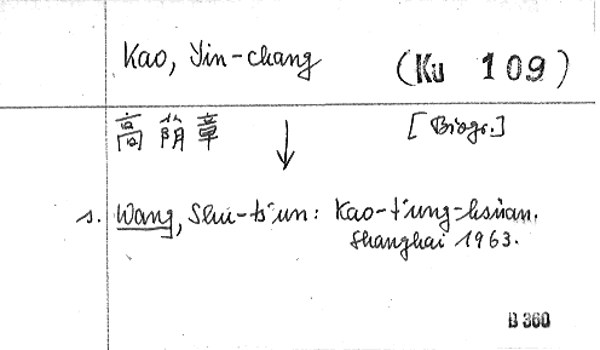 Kao, Yin-chang (Ku 109)
高蔭章 ↓ [Biogr.]
s. Wang, Shu-ts'un: Kao-t'ung-hsüan.
Shanghai 1963.
B 360